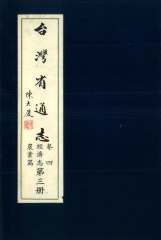 台灣省通志
陳大慶
卷四
經濟志
農業篇
第三册